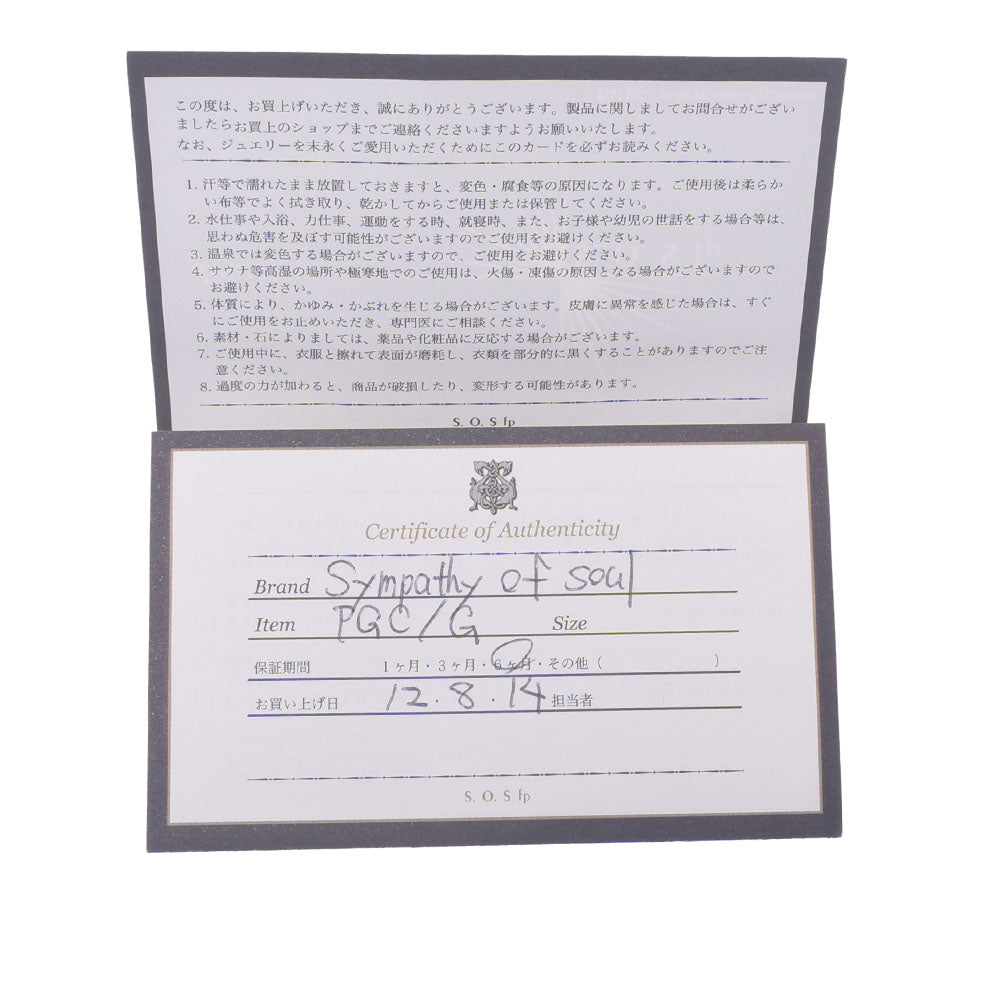 この度は、お買上げいただき、誠にありがとうございます。製品に関しましてお問合せがござい
ましたらお買上のショップまでご連絡くださいますようお願いいたします。
なお、ジュエリーを末永くご愛用いただくためにこのカードを必ずお読みください。
1. 汗等で濡れたまま放置しておきますと、変色・腐食等の原因になります。ご使用後は柔らか
い布等でよく拭き取り、乾かしてからご使用または保管してください。
2. 水仕事や入浴、力仕事、運動をする時、就寝時、また、お子様や幼児の世話をする場合等は、
思わぬ危害を及ぼす可能性がございますのでご使用をお避けください。
3. 温泉では変色する場合がございますので、ご使用をお避けください。
4. サウナ等高湿の場所や極寒地でのご使用は、火傷・凍傷の原因となる場合がございますので
お避けください。
5. 体質により、かゆみ・かぶれを生じる場合がございます。皮膚に異常を感じた場合は、すぐ
にご使用をお止めいただき、専門医にご相談ください。
6. 素材・石によりましては、薬品や化粧品に反応する場合がございます。
7. ご使用中に、衣服と擦れて表面が磨耗し、衣類を部分的に黒くすることがありますのでご注
意ください。
8. 過度の力が加わると、商品が破損したり、変形する可能性があります。
S. O. S fp
Certificate of Authenticity
Brand Sympathy of soul
Item PGC/G Size
保証期間 1ヶ月・3ヶ月・6ヶ月・その他( )
お買い上げ日 12.8.14 担当者
S. O. S fp